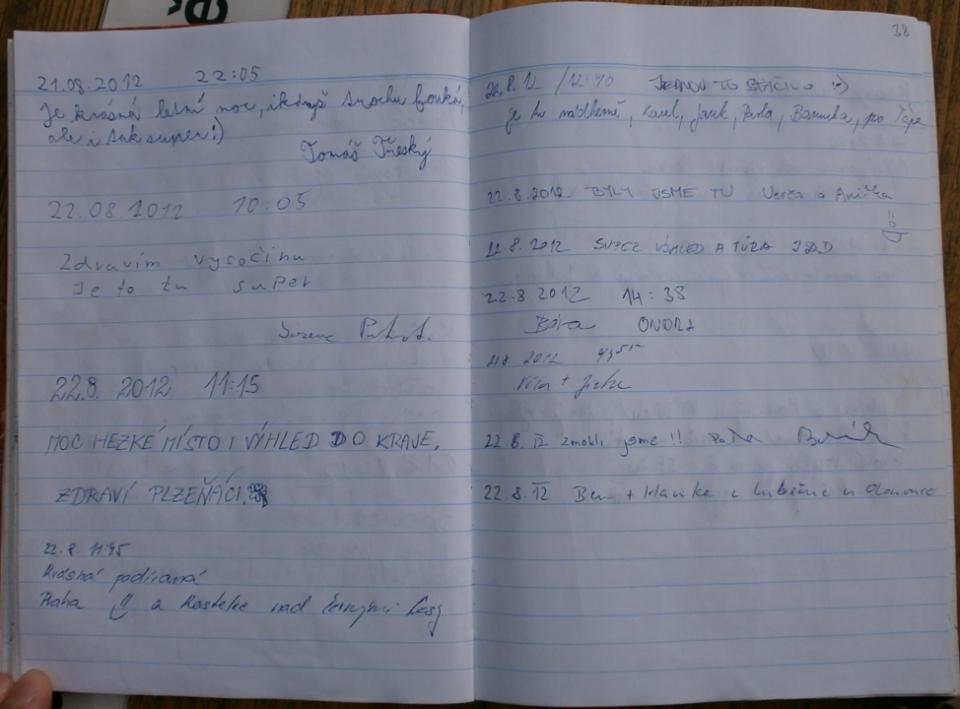 21.08.2012 22:05
Je krásná letní noc, ikdyž trochu fouká,
ale i tak super :)
Tomáš Třeský
22.08 2012 10:05
Zdravím vysočinu
Je to tu super
22.8. 2012 11:15
MOC HEZKÉ MÍSTO I VÝHLED DO KRAJE.
ZDRAVÍ PLZEŇÁCI.
22.8 11:45
Krásná podívaná
Praha a Kostelec nad černými lesy
38
22.8.12 /12:40 JEDNOU TO STAČILO :)
je tu nádherně, Karel, Jarek, Pavla, Barunka, pes
22.8.2012 BYLY JSME TU Verča a Anička
22.8. 2012 SUPER VÝHLED A TÚRA
22.8 2012 14:38
Bára ONDRA
2012
22.8. 12 zmokli jsme !!
22.8.12 Ben + Hanka z u Olomouce